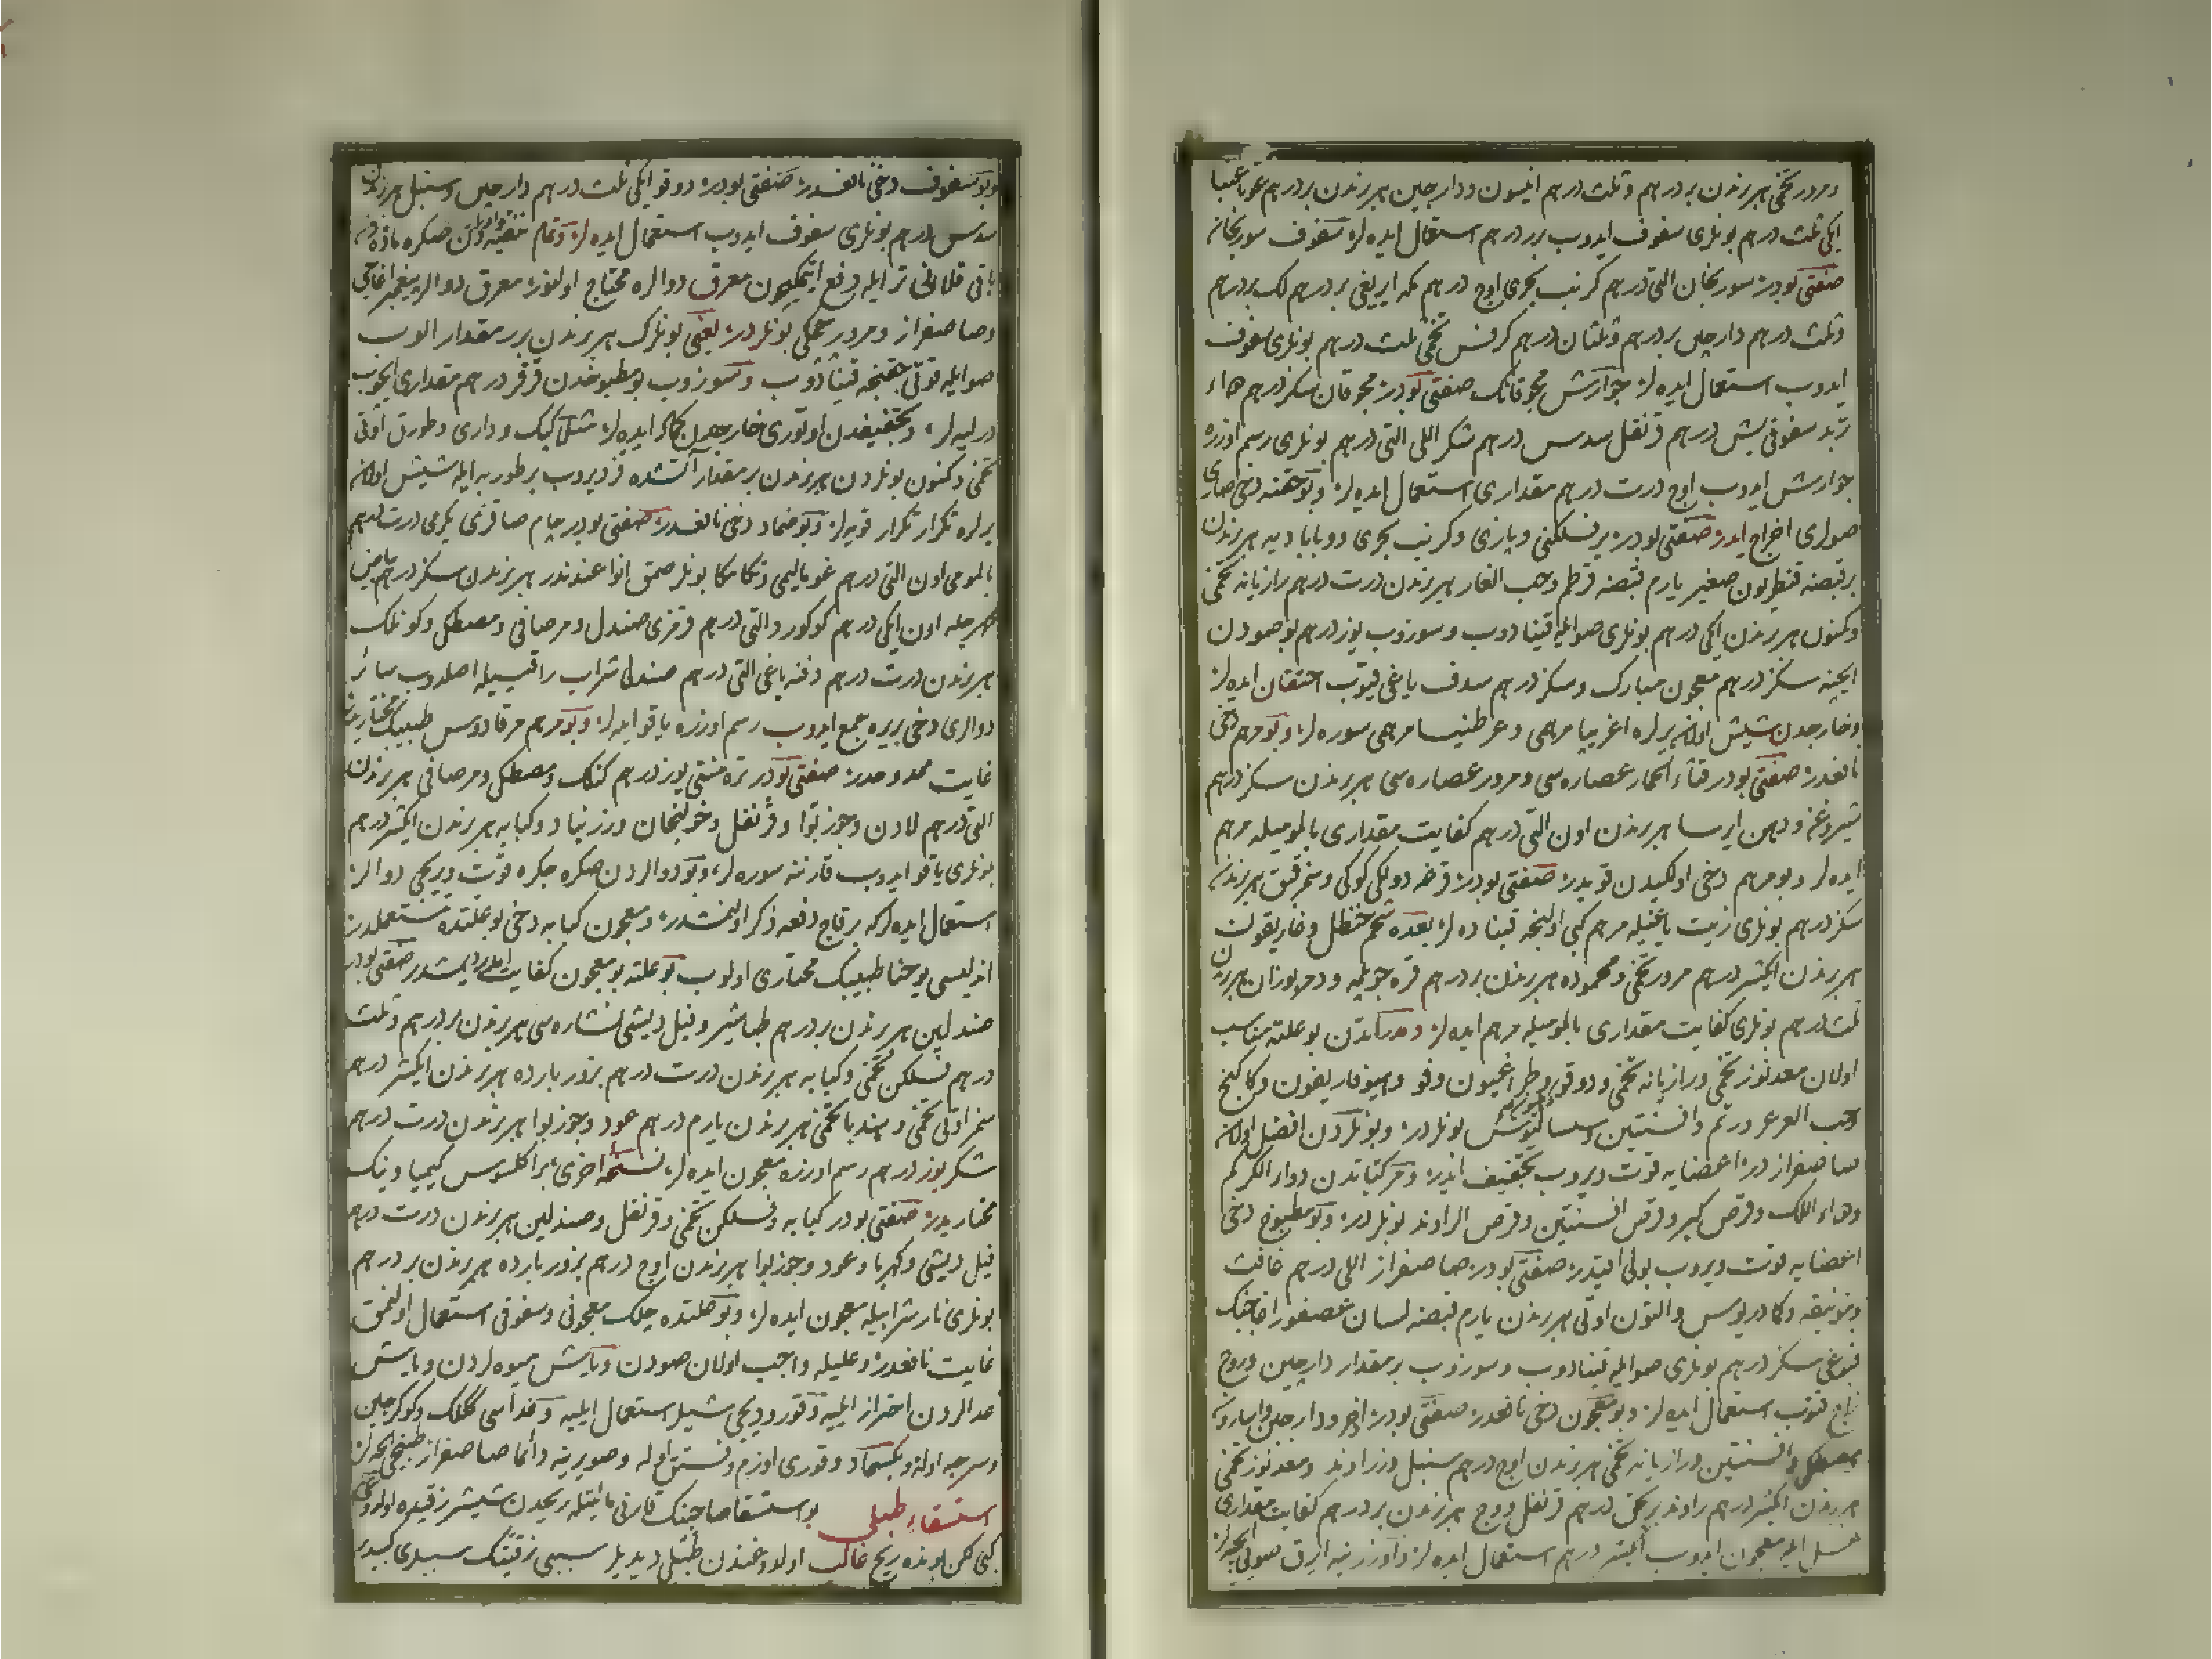 ومرور تخمی هر برندن بر درهم وثلث درهم انیسون ودار چین هر برندن بر درهم غوما غمبا
ایکی ثلث درهم بونلری سفوف ایدوب برر درهم استعمال ایده لر سفوف سورنجانه
صنعتی بودر سورنجان التی درهم کرنب بحری اوچ درهم مکه ایریغی بر درهم لک بر درهم
وثلث درهم دارچین بر درهم وثلثان درهم کرفس تخمی ثلث درهم بونلری سفوف
ایدوب استعمال ایده لر جوارش مجوقانک صنعتی بودر مجوقان سکز درهم هاء
تربد سفوفی بش درهم قرنفل سدس درهم شکر اللی التی درهم بونلری رسم اوزره
جوارش ایدوب اوچ درت درهم مقداری استعمال ایده لر وبو حقنه دخی صاری
صولری اخراج ایدر صنعتی بودر برنسلکنی ویازی وکرنب بحری وبابادیه هر برندن
بر قبضه قنطریون صغیر یارم قبضه قرطم وحب الغار هر برندن درت درهم رازیانه تخمی
وکمون هر برندن ایکی درهم بونلری صوایله قینادوب وسوزوب یوز درهم بو صودن
ایچنه سکز درهم معجون مبارک وسکز درهم سدف یاغی قیوب احتقان ایده لر
وخارجدن شیش اولان یرلره اغریپا مرهمی وعرطنیسا مرهمی سوره لر وبو مرهم دخی
نافعدر صنعتی بودر قثاء الحمار عصاره سی ومرور عصاره سی هر برندن سکز درهم
شیروغن ودهن ایرسا هر برندن اون التی درهم کفایت مقداری بالمومیله مرهم
ایده لر وبو مرهم دخی اولکیدن قویدر صنعتی بودر قرضه دولکی کوکی وسخر قیق هر برندن
سکز درهم بونلری زیت یاغیله مرهم کبی اولنجه قینا ده لر بعده شحم حنظل وغاریقون
هر برندن ایکیشر درهم مرور تخمی ومحموده هر برندن بر درهم قره جویله ودر بوزان هر برندن
ثلث درهم بونلری کفایت مقداری بالمومیله مرهم ایده لر ومدراتدن بو علته مناسب
اولان معدنوز تخمی ورازیانه تخمی ودوقو وطراغیون وفو وهیوفاریقون وکاکنج
وحب العرعر ورتم وافسنتین وسسالیوس بونلردر وبونلردن افضل اولان
صاصفراز در اعضایه قوت ویروب تجفیف ایدر ومرکباتدن دوار الکرکم
ودواء اللک وقرص کبر وقرص افسنتین وقرص الراوند بونلردر وبو مطبوخ دخی
اعضایه قوت ویروب بولی ایتدر صنعتی بودر صاصفراز اللی درهم غافث
وبتونیقه وکادریوس والتون اوتی هر برندن یارم قبضه لسان عصفور اغاجنک
قبوغی سکز درهم بونلری صوایله قینادوب وسوزوب بر مقدار دارچین ووج
قتوب استعمال ایده لر وبو معجون دخی نافعدر صنعتی بودر اذخر ودارچین واسارون
مصطکی وافسنتین ورازیانه تخمی هر برندن اوچ درهم سنبل وزراوند ومعدنوز تخمی
هر برندن ایکیشر درهم راوند درهم قرنفل ووج هر برندن بر درهم کفایت مقداری
عسل ایله معجون ایدوب ایکیشر درهم استعمال ایده لر واوزرینه ایرق صوین ایچه لر
وبو سفوف دخی نافعدر صنعتی بودر دوقو ایکی ثلث درهم دارچین وسنبل هر برندن
سدس درهم بونلری سفوف ایدوب استعمال ایده لر وتمام تنقیه اولدقدن صکره ماده نک
باقی قلانی ترایله دفع ایتمکیچون معرق دوالره محتاج اولنور معرق دوالر پیغمبر اغاجی
وصاصفراز ومرور تخمکی بونلردر یعنی بونلرک هر برندن برر مقدار الوب
صوایله قینادوب وسوزوب بو مطبوخدن قرقر درهم مقداری ایچوب
درلیه لر وتجفیفدن اوتوری خارجدن کماد ایده لر مثلا کبک وداری وطورق اوتی
تخمی وکمون بونلردن هر برندن بر مقدار آتشده قزدیروب بر طوربه ایله شیش اولان
یرلره تکرار تکرار قویه لر وبو ضماد دخی نافعدر صنعتی بودر جام صاقزی یکرمی درت درهم
بالمومی اون التی درهم غومالیمی وتکامکا بونلر صمغ انواعندندر هر برندن سکز درهم
اون ایکی درهم کوکورد التی درهم قرمزی صندل ومر صافی ومصطکی وکونلک
هر برندن درت درهم دفنه یاغی التی درهم صندلی شراب راقیسیله اصلدوب سائر
دوالری دخی بریره جمع ایدوب رسم اوزره یاقو ایده لر وبو مرهم مرقادوس طبیبک مختاریدر
غایت ممدوحدر صنعتی بودر تره منتی یوز درهم کنک ومصطکی ومر صافی هر برندن
التی درهم لادن وجوز بوا وقرنفل وخولنجان وزرنباد وکبابه هر برندن ایکیشر درهم
بونلری یاقو ایدوب قارننه سوره لر وبو دوالردن صکره جکره قوت ویریجی دوالر
استعمال ایده لرکه برقاچ دفعه ذکر اولنمشدر ومعجون کبابه دخی بو علتده مستعملدر
اندلسی یوحنا طبیبک مختاری اولوب بو علته بو معجون کفایت ایدر دیمشدر صنعتی بودر
صندلین هر برندن بر درهم طباشیر وفیل دیشی نشاره سی هر برندن بر درهم وثلث
درهم فسلکن تخمی وکبابه هر برندن درت درهم بزور بارده هر برندن ایکیشر درهم
سمز اوتی تخمی وهندبا تخمی هر برندن یارم درهم عود وجوز بوا هر برندن درت درهم
شکر یوز درهم رسم اوزره معجون ایده لر نسخه اخری براکلسوس کیمیا دینک
مختاریدر صنعتی بودر کبابه وفسلکن تخمی وقرنفل وصندلین هر برندن درت درهم
فیل دیشی وکهربا وعود وجوز بوا هر برندن اوچ درهم بزور بارده هر برندن بر درهم
بونلری نار شرابیله معجون ایده لر وبو علتده جلک معجونی وسفوفی استعمال اولنمق
غایت نافعدر وعلیله واجب اولان صودن ویاش میوه لردن ویاش
غدالردن احتراز ایلیه وقورودیجی شیلر استعمال ایلیه وغداسی ککلک وکوکرجین
وسرجه اوله وبکسماد وقوری اوزم وفستق اوله وصو یرینه دائما صاصفراز طبیخی ایچه لر
استسقاء طبلی بو استسقا صاحبنک قارنی مائیتله ریحدن شیشر زقیده اولدوغی
کبی لکن بونده ریح غالب اولدوغندن طبلی دیدیلر سببی زقینک سببلری کبیدر